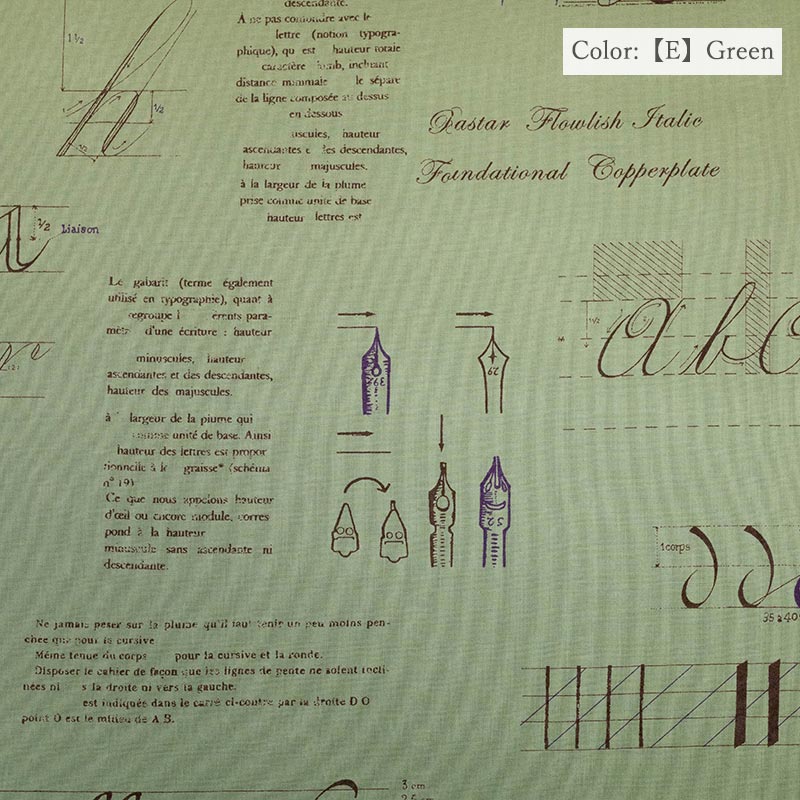 Color:【E】Green
descendante.
A ne pas confondre avec le
lettre (notion typogra-
phique), qu est hauteur totale
caractère
distance minimale le sépare
de la ligne composée dessus
en dessous
uscules, hauteur
ascendantes e les descendantes,
hauteur majuscules.
à la largeur de la plume
prise comme unité de base
hauteur lettres est
1 ½
½
½
Pastar Flowlish Italic
Foundational Copperplate
½
Liaison
Le gabarit (terme également
utilisé en typographie), quant à
regroupe l érents para-
mètr d'une écriture : hauteur
minuscules, hauteur
ascendantes et des descendantes,
hauteur des majuscules.
à largeur de la plume qui
comme unité de base. Ainsi
hauteur des lettres est propor
tionnelle à le graisse* (schéma
n° 19)
Ce que nous appelons hauteur
d'œil ou encore module, corres
pond à la hauteur
minuscule sans ascendante ni
descendante.
a b
1 corps
35 à 40°
Ne jamais peser sur la plume qu'il faut tenir un peu moins pen-
chee que pour la cursive
Même tenue du corps pour la cursive et la ronde.
Disposer le cahier de façon que les lignes de pente ne soient incli-
nées ni s la droite ni vers la gauche.
est indiquée dans le carré ci-contre par la droite D O
point O est le milieu de A B.
3 cm